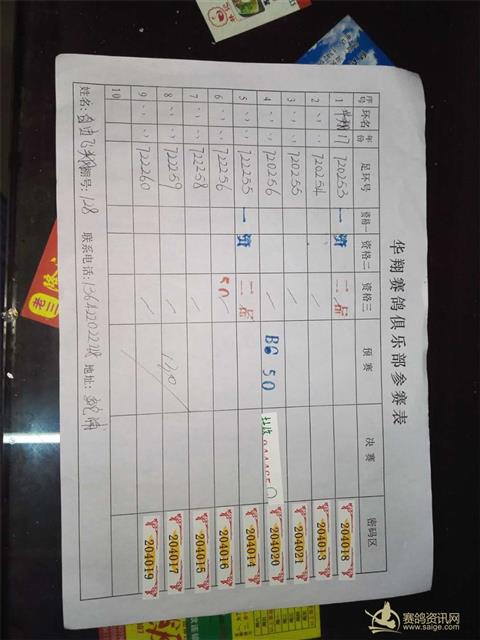 华翔赛鸽俱乐部参赛表
序号 环名 年份 足环号 资格一 资格二 资格三 预赛 决赛 密码区
1 华翔 17 720253 一资 二后 204018
2 〃 〃 720254 204013
3 〃 〃 720255 204021
4 〃 〃 720256 BC 50 204020
5 〃 〃 722255 一资 二后 204014
6 〃 〃 722256 50 204016
7 〃 〃 722258 204015
8 〃 〃 722259 204017
9 〃 〃 722260 204019
10
姓名: 自由飞翔 棚号: 128 联系电话: 地址:
老三
赛鸽资讯网
www.saige.com